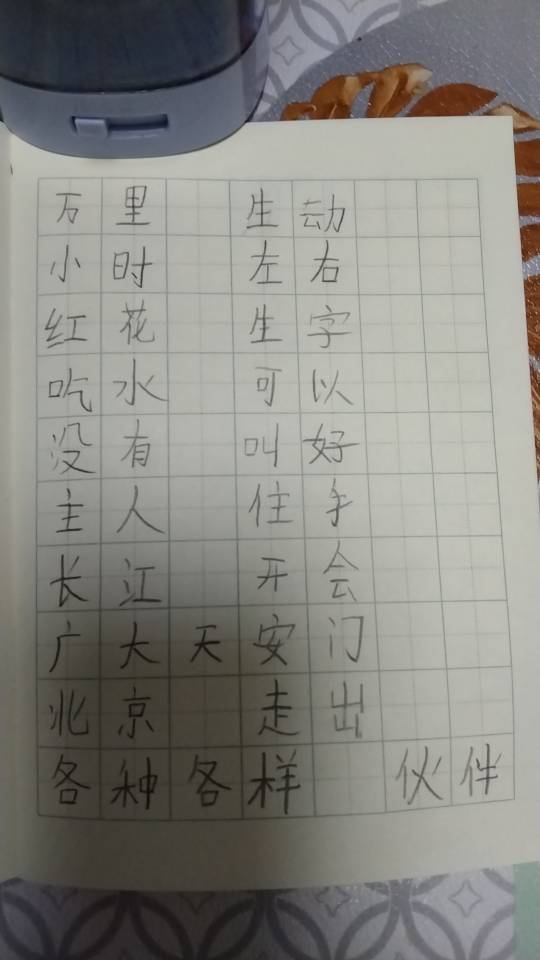 万里 生动
小时 左右
红花 生字
吃水 可以
没有 叫好
主人 住手
长江 开会
广大 天安门
北京 走出
各种各样 伙伴